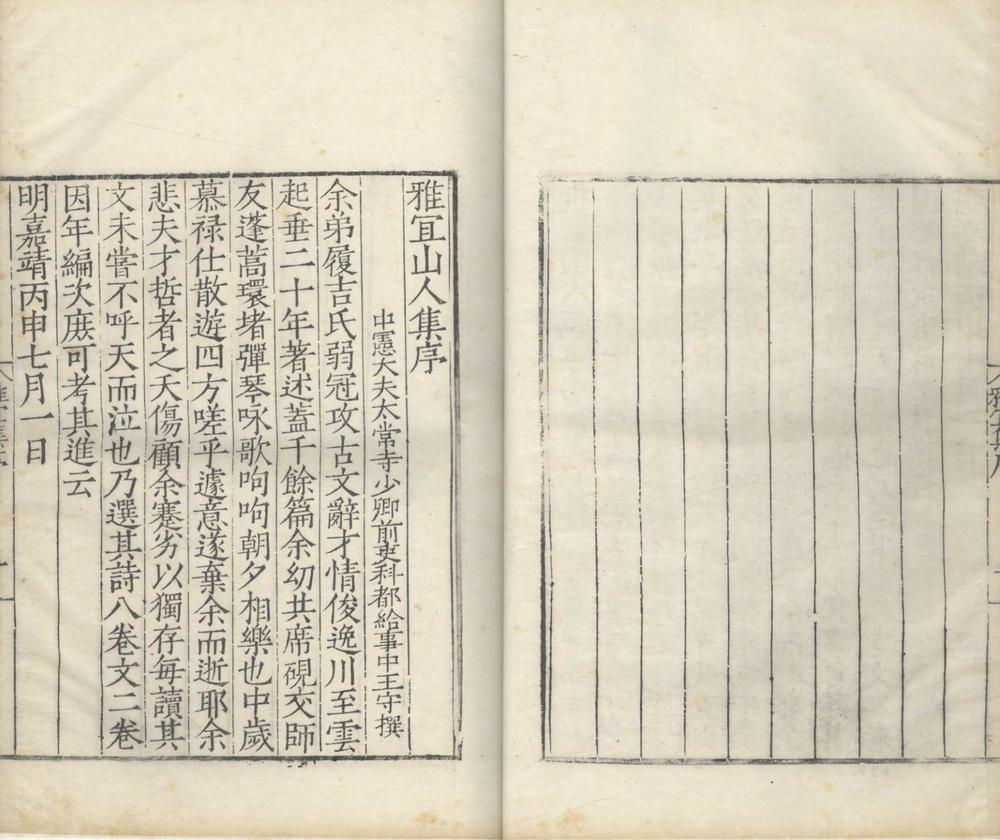 雅宜山人集序
中憲大夫太常寺少卿前吏科都給事中王守撰
余弟履吉氏弱冠攻古文辭才情俊逸川至雲
起垂二十年著述蓋千餘篇余幼共席硯交師
友蓬蒿環堵彈琴咏歌呴呴朝夕相樂也中歲
慕禄仕散遊四方嗟乎遽意遂棄余而逝耶余
悲夫才哲者之夭傷顧余蹇劣以獨存每讀其
文未嘗不呼天而泣也乃選其詩八卷文二卷
因年編次庻可考其進云
明嘉靖丙申七月一日